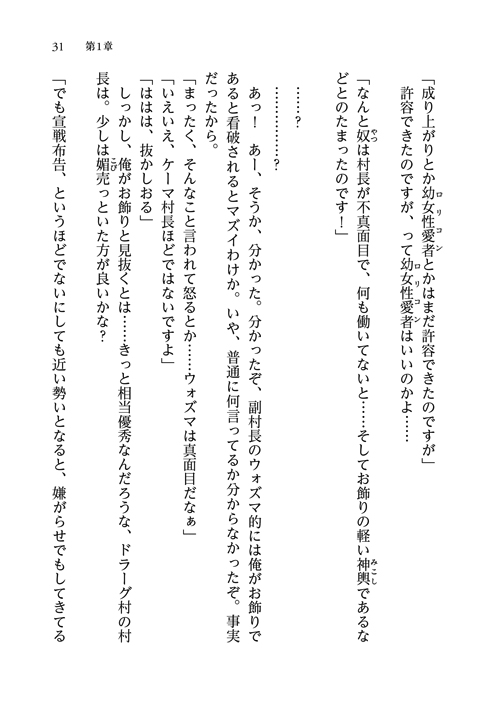 31　第1章
「成り上がりとか幼女性愛者とかはまだ許容できたのですが」
許容できたのですが、って幼女性愛者はいいのかよ……
「なんと奴は村長が不真面目で、何も働いてないと……そしてお飾りの軽い神輿であるな
どとのたまったのです！」
……？
……………？
あっ！　あー、そうか、分かった。分かったぞ、副村長のウォズマ的には俺がお飾りで
あると看破されるとマズイわけか。いや、普通に何言ってるか分からなかったぞ。事実
だったから。
「まったく、そんなこと言われて怒るとか……ウォズマは真面目だなぁ」
「いえいえ、ケーマ村長ほどではないですよ」
「ははは、抜かしおる」
しっかし、俺がお飾りと見抜くとは……きっと相当優秀なんだろうな、ドラーグ村の村
長は。少しは媚売っといた方が良いかな？
「でも宣戦布告、というほどでないにしても近い勢いとなると、嫌がらせでもしてきてる